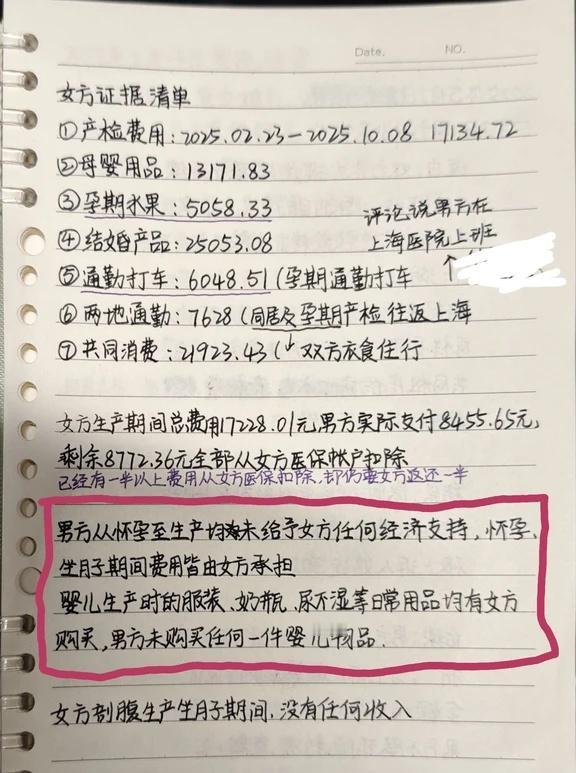 Date. NO.
女方证据清单
①产检费用:2025.02.23—2025.10.08 17134.72
②母婴用品:13171.83
③孕期水果:5058.33
评论说男方在
④结婚产品:25053.08
上海医院上班
⑤通勤打车:6048.51(孕期通勤打车
↑
⑥两地通勤:7628(同居及孕期产检往返上海
⑦共同消费:21923.43(↓双方衣食住行
女方生产期间总费用17228.01元男方实际支付8455.65元,
剩余8772.36元全部从女方医保帐户扣除
已经有一半以上费用从女方医保扣除,却仍要女方返还一半
男方从怀孕至生产均未给予女方任何经济支持,怀孕、
坐月子期间费用皆由女方承担
婴儿生产时的服装、奶瓶、尿不湿等日常用品均有女方
购买,男方未购买任何一件婴儿物品.
女方剖腹生产坐月子期间,没有任何收入